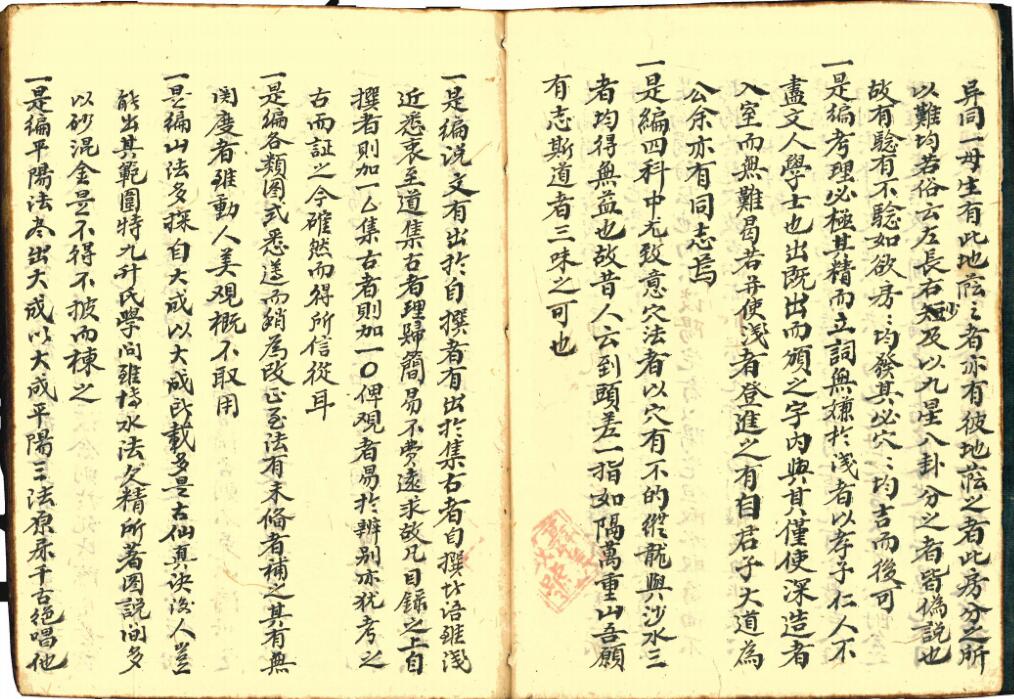 異同一母生有此地蔭之者亦有彼地蔭之者此房分之所
以難均若俗云左長右少及以九星八卦分之者皆偽說也
故有驗有不驗如欲房〻均發其必穴〻均吉而後可
一是編考理必極其精而立詞無嫌於淺者以孝子仁人不
盡文人學士也出既出而頒之宇內與其僅使深造者
入室而無難曷若并使淺者登進之有自君子大道為
公余亦有同志焉
一是編四科中尤致意穴法者以穴有不的縱龍與沙水三
者均得無益也故昔人云到頭差一指如隔萬重山吾願
有志斯道者三味之可也
一是編說文有出於自撰者有出於集古者自撰者語雖淺
近悉衷至道集古者理歸簡易不費遠求故凡目錄之上自
撰者則加一厶集古者則加一〇俾觀者易於辨別亦猶考之
古而証之今確然而得所信從耳
一是編各類圖式悉遵而稍為改正至法有未備者補之其有無
関度者雖動人美觀概不取用
一是編山法多採自大成以大成所載多是古仙真訣後人豈
能出其範圍特九升氏學問雖博水法欠精所著圖說間多
以砂混金是不得不披而棟之
一是編平陽法亦出大成以大成平陽三法原亦千古絕唱他